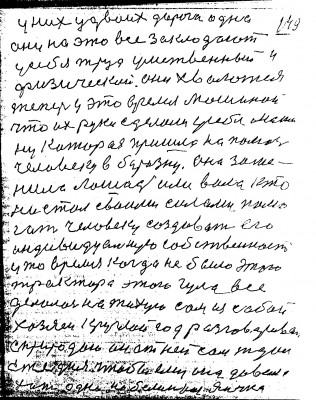 149
у них удвоих дорога одна
они на это все закладают
у себя труд умственный и
физический. они хвалются
теперь у это время машиной
что их руки сделали у себя маши
ну которая пришла на помощь
человеку в борозну. она заме-
нила лошадь или вола кто
настоял своими силами помо
гат человеку создават его
индивидуалную собственность
у то время когда не было этого
трактора этого гула все
делалося на тихую сам из собой
хозяин круглой год разговаривал
с природою он от ней сам ждал